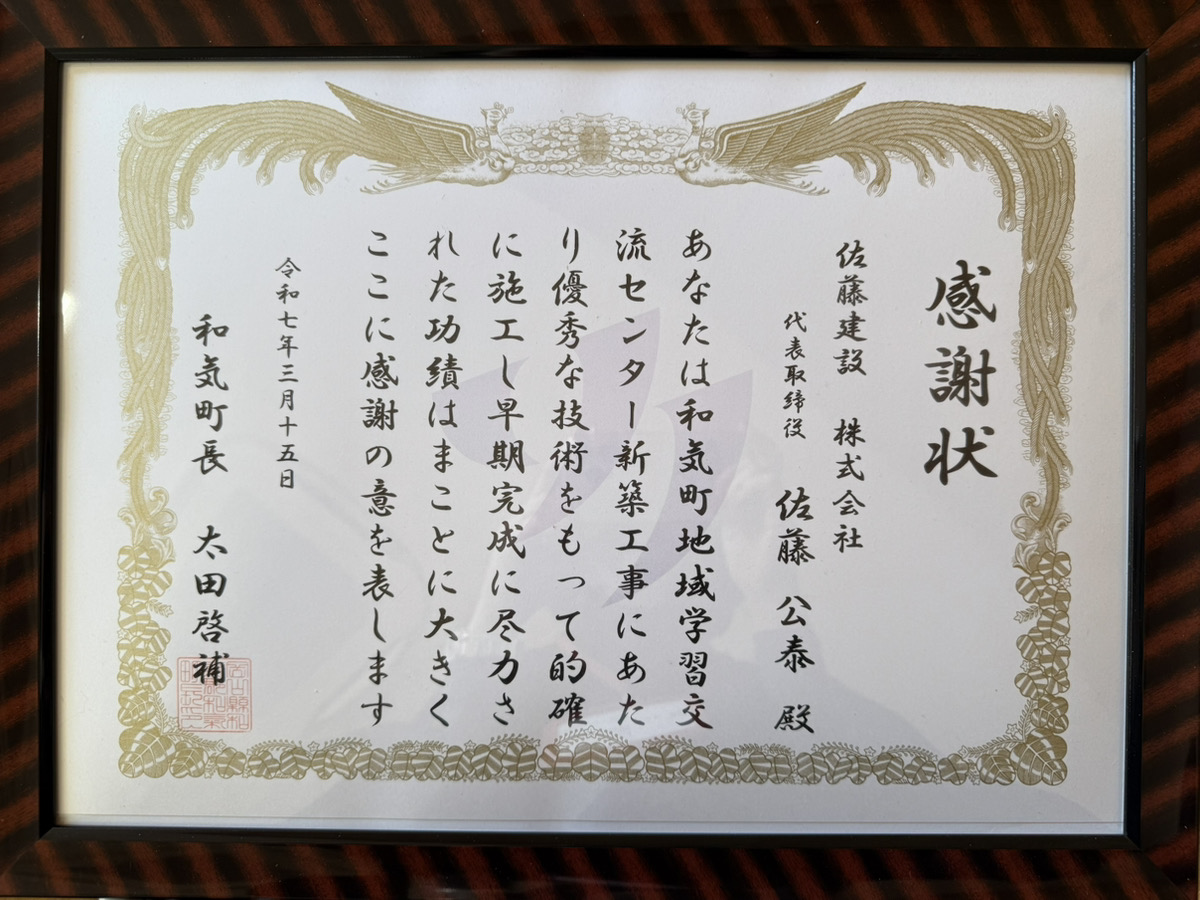 感謝状
佐藤建設 株式会社
代表取締役 佐藤 公泰 殿
あなたは和気町地域学習交
流センター新築工事にあた
り優秀な技術をもって的確
に施工し早期完成に尽力さ
れた功績はまことに大きく
ここに感謝の意を表します
令和七年三月十五日
和気町長 太田啓補